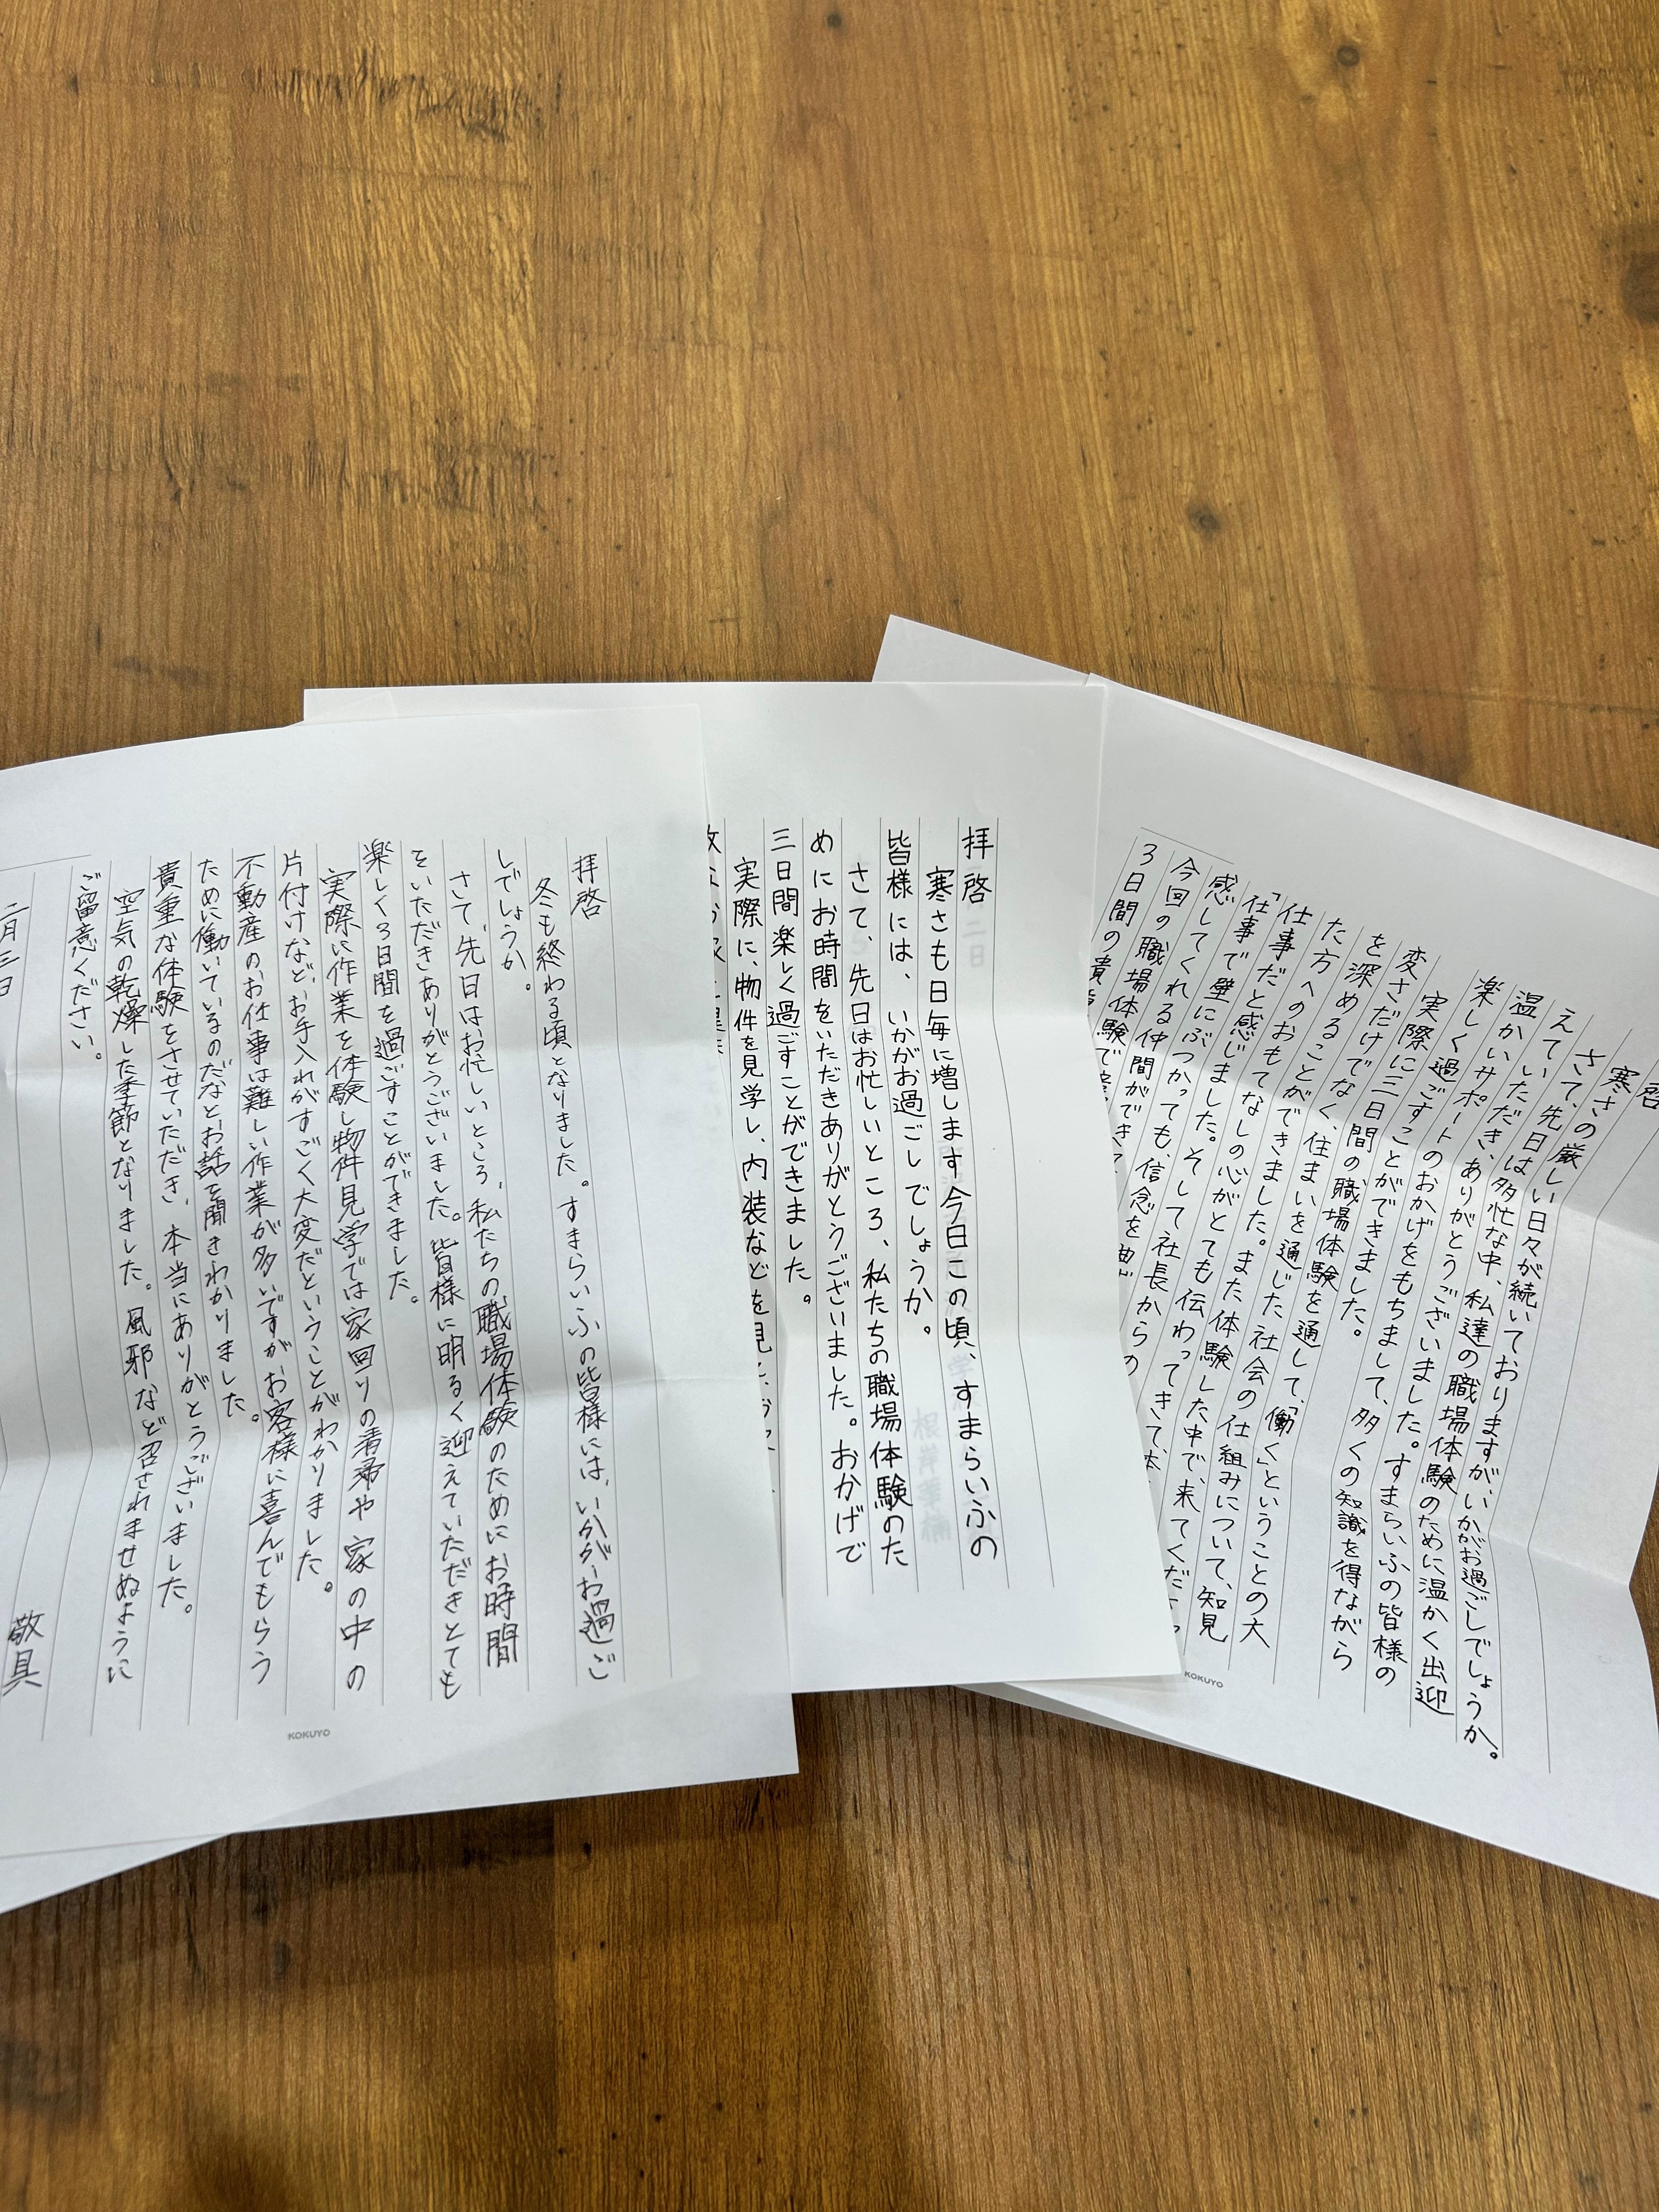 啓
寒さの厳しい日々が続いておりますが、いかがお過ごしでしょうか。
さて、先日は多忙な中、私達の職場体験のために温かく出迎
えていただき、ありがとうございました。すまらいふの皆様の
温かいサポートのおかげをもちまして、多くの知識を得ながら
楽しく過ごすことができました。
実際に三日間の職場体験を通して、「働く」ということの大
変さだけでなく、住まいを通じた社会の仕組みについて、知見
を深めることができました。また体験した中で、来てくださっ
た方へのおもてなしの心がとても伝わってきて、本
仕事だと感じました。そして社長からの
「仕事で壁にぶつかっても、信念を曲
感してくれる仲間ができて
今回の職場体験で
3日間の貴
拝啓
寒さも日毎に増します今日この頃、すまらいふの
皆様には、いかがお過ごしでしょうか。
さて、先日はお忙しいところ、私たちの職場体験のた
めにお時間をいただきありがとうございました。おかげで
三日間楽しく過ごすことができました。
実際に、物件を見学し、内装などを見
拝啓
冬も終わる頃となりました。すまらいふの皆様には、いかがお過ご
しでしょうか。
さて、先日はお忙しいところ、私たちの職場体験のためにお時間
をいただきありがとうございました。皆様に明るく迎えていただきとても
楽しく3日間を過ごすことができました。
実際に作業を体験し物件見学では家回りの清掃や家の中の
片付けなど、お手入れがすごく大変だということがわかりました。
不動産のお仕事は難しい作業が多いですが、お客様に喜んでもらう
ために働いているのだなとお話を聞きわかりました。
貴重な体験をさせていただき、本当にありがとうございました。
空気の乾燥した季節となりました。風邪など召されませぬように
ご留意ください。
敬具
二月三日
KOKUYO
KOKUYO